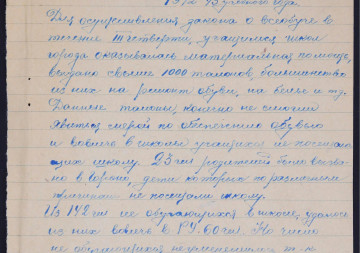 Для осуществления закона о всеобуче в
течение III четверти, учащимся школ
города оказывалась материальная помощь,
выдано свыше 1000 талонов, большинство
из них на ремонт обуви, на белье и т.д.
Данные талоны, конечно не смогли
явиться мерой по обеспечению обувью
и вовлечь в школы учащихся не посещаю
щих школу. 23 чел родителей было вызва-
но в Горсно, дети которых по различным
причинам не посещали школу.
Из 142 чел не обучающихся в школе, удалось
из них вовлечь в Р.У. 60 чел. Но число
не обучающихся